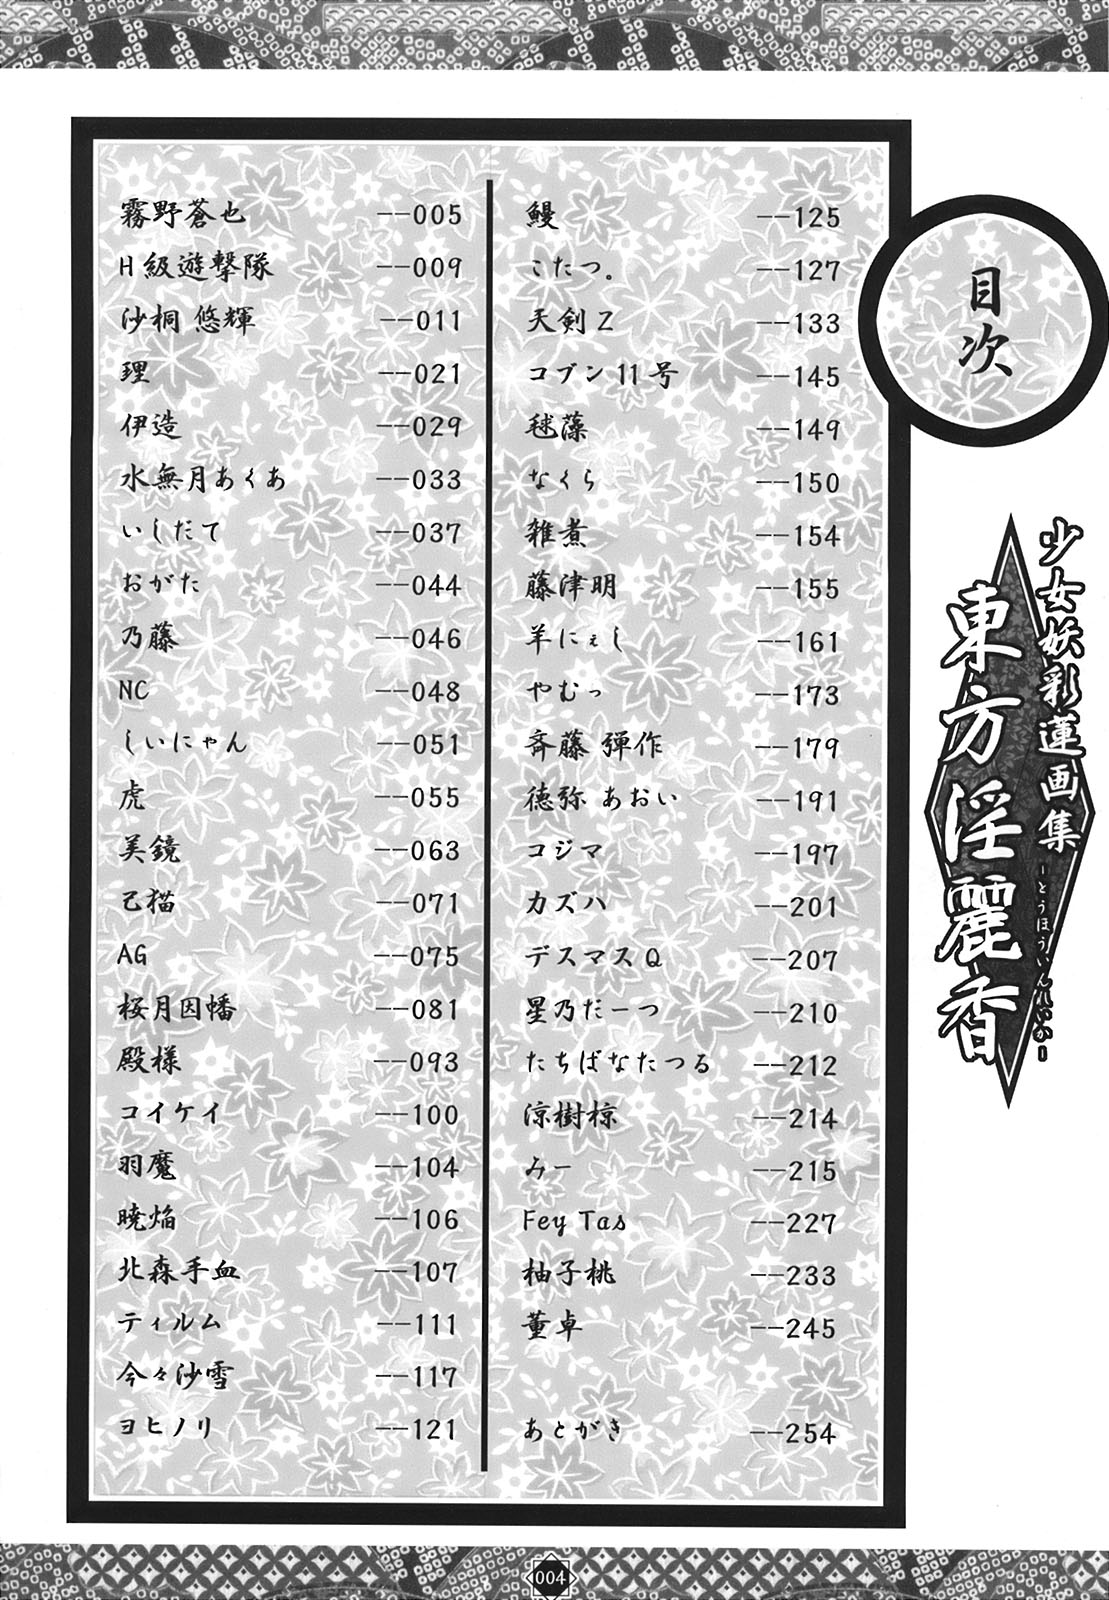 目次
少女妖彩蓮画集
東方淫麗香
-とうほういんれいか-
霧野蒼也 --005
H級遊撃隊 --009
沙桐 悠輝 --011
理 --021
伊造 --029
水無月あくあ --033
いしだて --037
おがた --044
乃藤 --046
NC --048
しいにゃん --051
虎 --055
美鏡 --063
己猫 --071
AG --075
桜月因幡 --081
殿様 --093
コイケイ --100
羽魔 --104
暁焔 --106
北森手血 --107
ティルム --111
今々沙雪 --117
ヨヒノリ --121
鰻 --125
こたつ。 --127
天剣Z --133
コブン11号 --145
毬藻 --149
なくら --150
雑煮 --154
藤津明 --155
羊にぇし --161
やむっ --173
斉藤 弾作 --179
徳弥 あおい --191
コジマ --197
カズハ --201
デスマスQ --207
星乃だーつ --210
たちばなたつる --212
涼樹椋 --214
みー --215
Fey Tas --227
柚子桃 --233
董卓 --245
あとがき --254
004